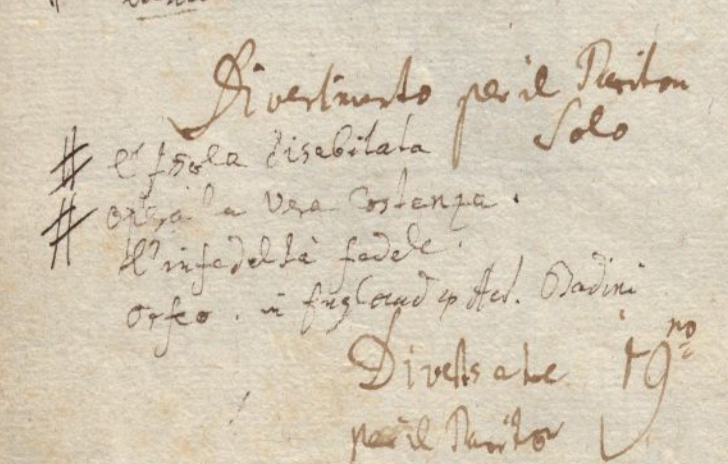 Divertimento per il Pariton
Solo
# l'Isola disabitata
# opera la vera Costanza.
L'infedeltà fedele.
Orfeo. in England Badini
per il Pariton